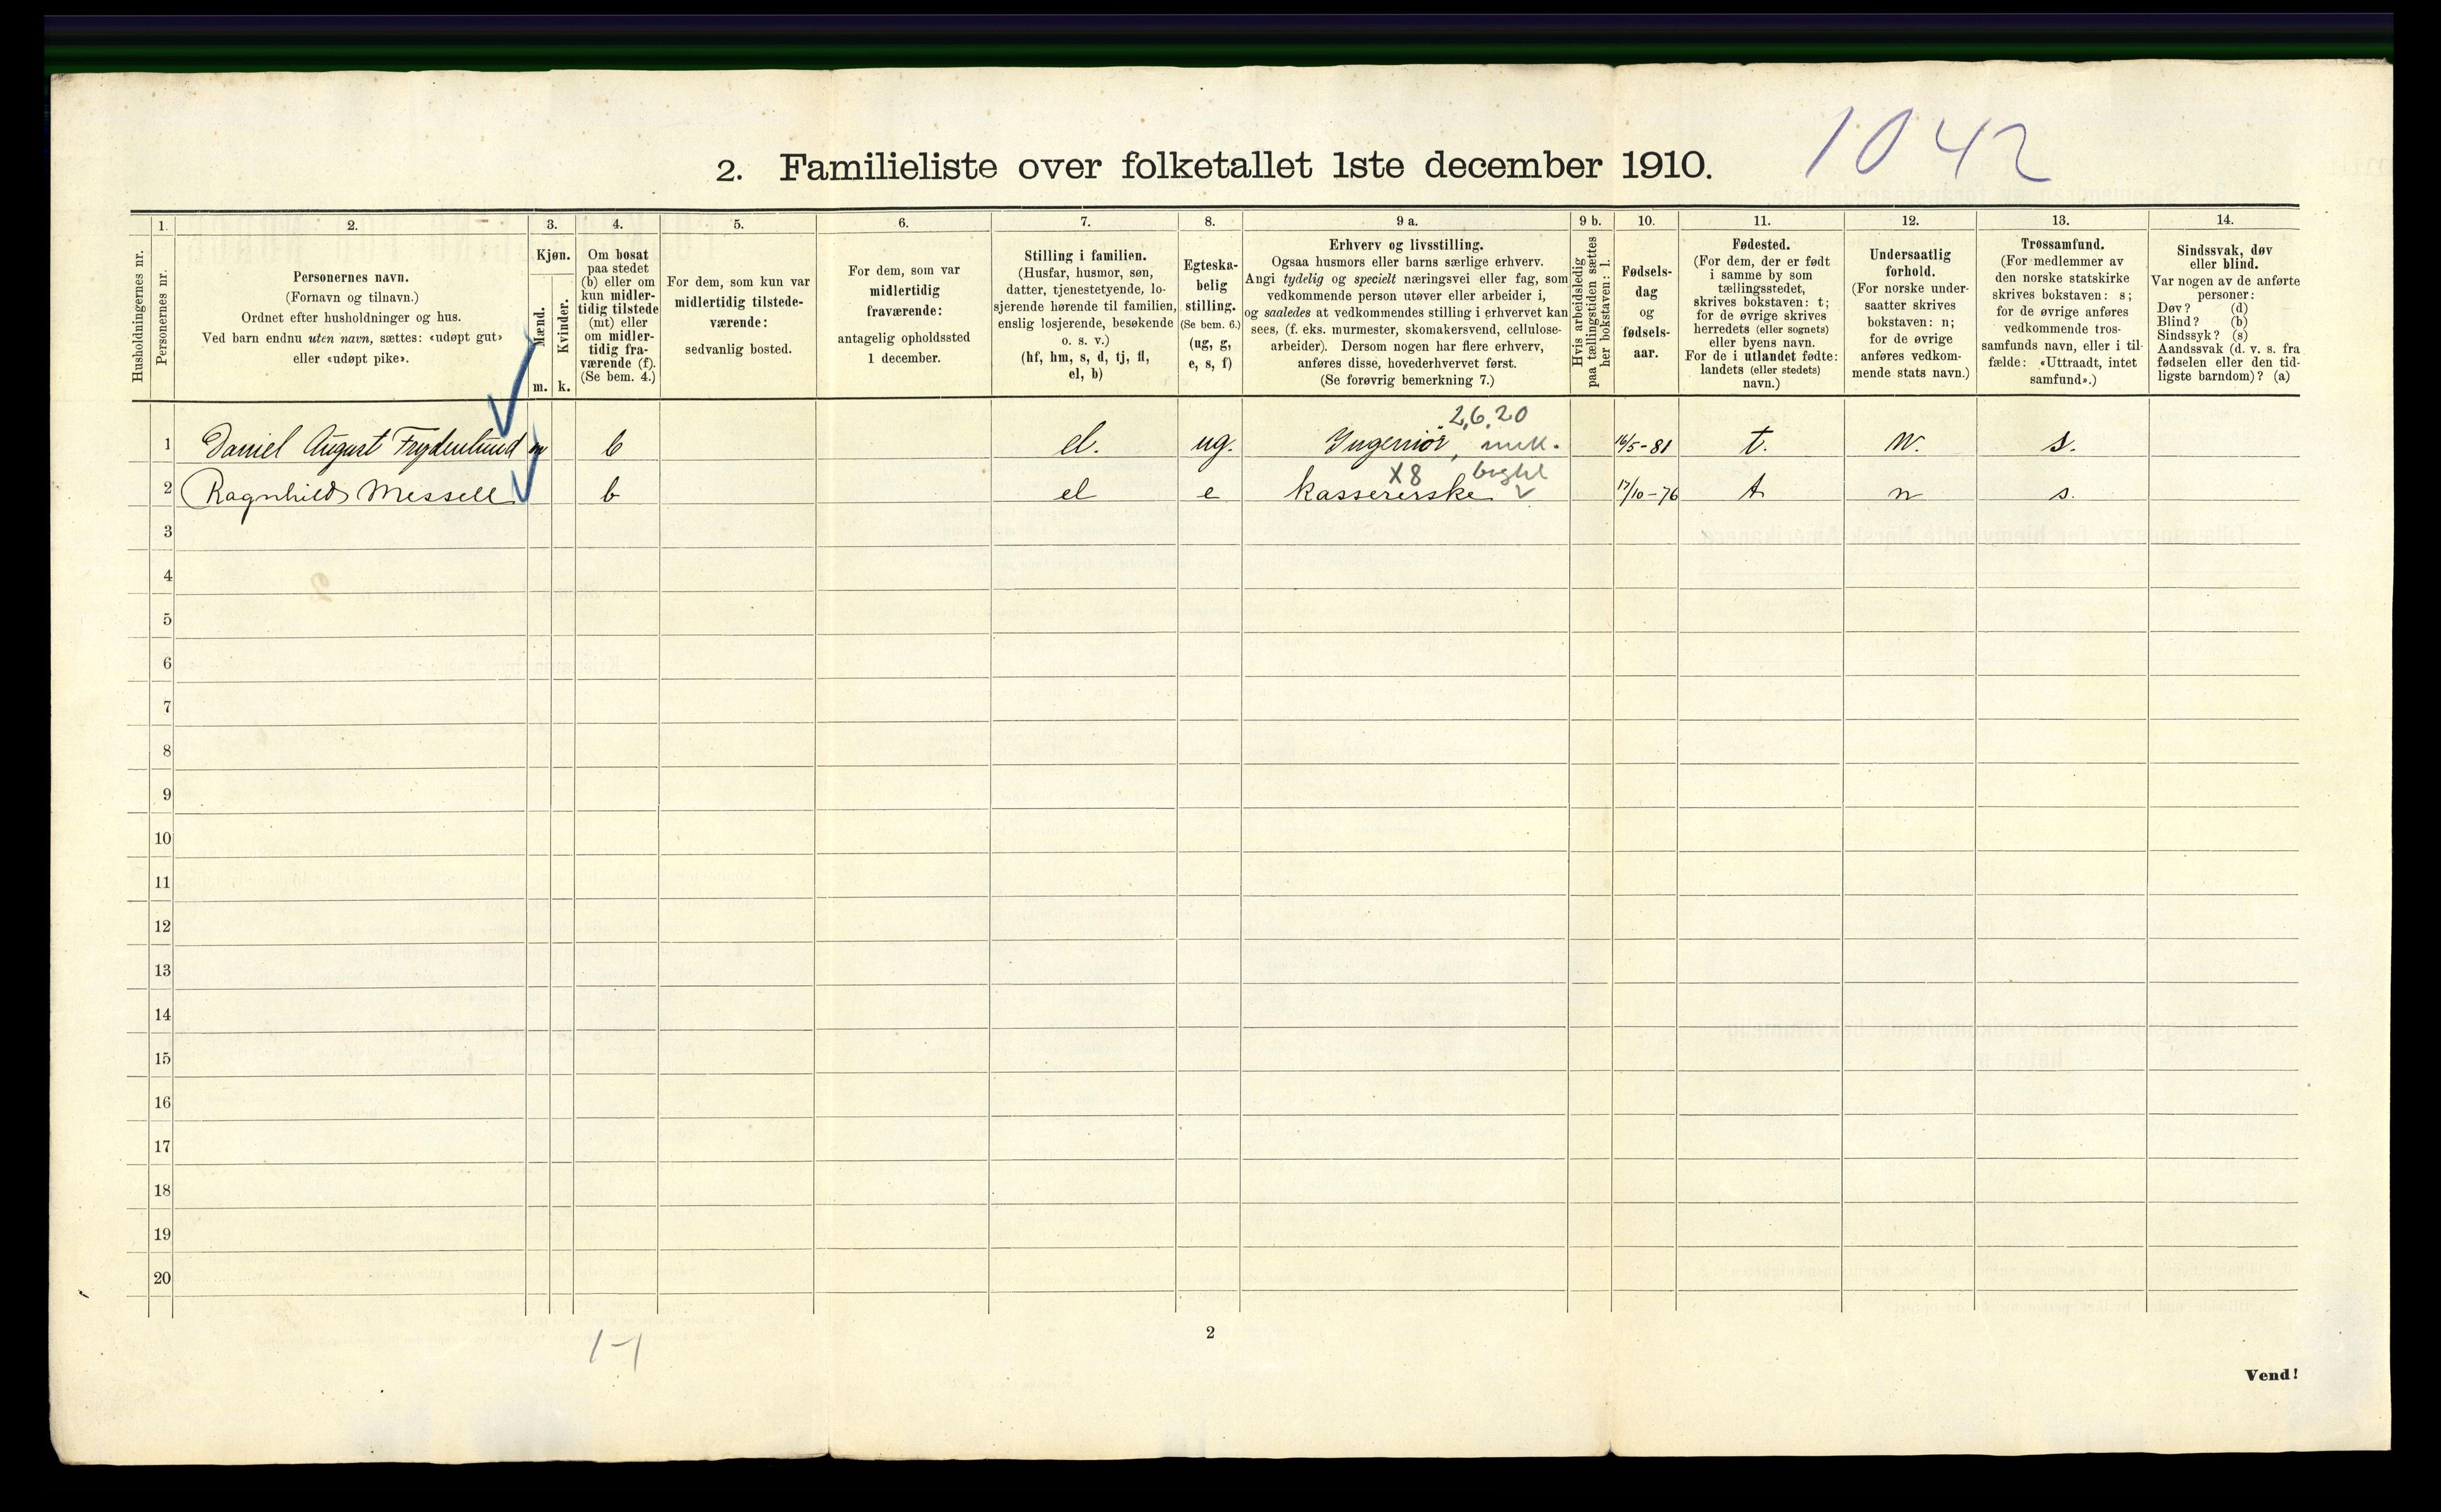 1042
2. Familieliste over folketallet 1ste december 1910.
Husholdningernes nr.
1.
Personernes nr.
2.
Personernes navn.
(Fornavn og tilnavn.)
Ordnet efter husholdninger og hus.
Ved barn endnu uten navn, sættes: «udøpt gut»
eller «udøpt pike».
3.
Kjøn.
Mænd.
m.
Kvinder.
k.
4.
Om bosat
paa stedet
(b) eller om
kun midler-
tidig tilstede
(mt) eller
om midler-
tidig fra-
værende (f).
(Se bem. 4.)
5.
For dem, som kun var
midlertidig tilstede-
værende:
sedvanlig bosted.
6.
For dem, som var
midlertidig
fraværende:
antagelig opholdssted
1 december.
7.
Stilling i familien.
(Husfar, husmor, søn,
datter, tjenestetyende, lo-
sjerende hørende til familien,
enslig losjerende, besøkende
o. s. v.)
(hf, hm, s, d, tj, fl,
el, b)
8.
Egteska-
belig
stilling.
(Se bem. 6.)
(ug, g,
e, s, f)
9 a.
Erhverv og livsstilling.
Ogsaa husmors eller barns særlige erhverv.
Angi tydelig og specielt næringsvei eller fag, som
vedkommende person utøver eller arbeider i,
og saaledes at vedkommendes stilling i erhvervet kan
sees, (f. eks. murmester, skomakersvend, cellulose-
arbeider). Dersom nogen har flere erhverv,
anføres disse, hovederhvervet først.
(Se forøvrig bemerkning 7.)
9 b.
Hvis arbeidsledig
paa tællingstiden sættes
her bokstaven: l.
10.
Fødsels-
dag
og
fødsels-
aar.
11.
Fødested.
(For dem, der er født
i samme by som
tællingsstedet,
skrives bokstaven: t;
for de øvrige skrives
herredets (eller sognets)
eller byens navn.
For de i utlandet fødte:
landets (eller stedets)
navn.)
12.
Undersaatlig
forhold.
(For norske under-
saatter skrives
bokstaven: n;
for de øvrige
anføres vedkom-
mende stats navn.)
13.
Trossamfund.
(For medlemmer av
den norske statskirke
skrives bokstaven: s;
for de øvrige anføres
vedkommende tros-
samfunds navn, eller i til-
fælde: «Uttraadt, intet
samfund».)
14.
Sindssvak, døv
eller blind.
Var nogen av de anførte
personer:
Døv? (d)
Blind? (b)
Sindssyk? (s)
Aandssvak (d. v. s. fra
fødselen eller den tid-
ligste barndom)? (a)
2,6,20
1 Daniel August Frydenlund m b el. ug. Ingeniør, mek. 16/5-81 t. n. s.
X8
2 Ragnhild Messell b el e kassererske 17/10-76 t n s.
3
4
5
6
7
8
9
10
11
12
13
14
15
16
17
18
19
20
1-1
2
Vend!